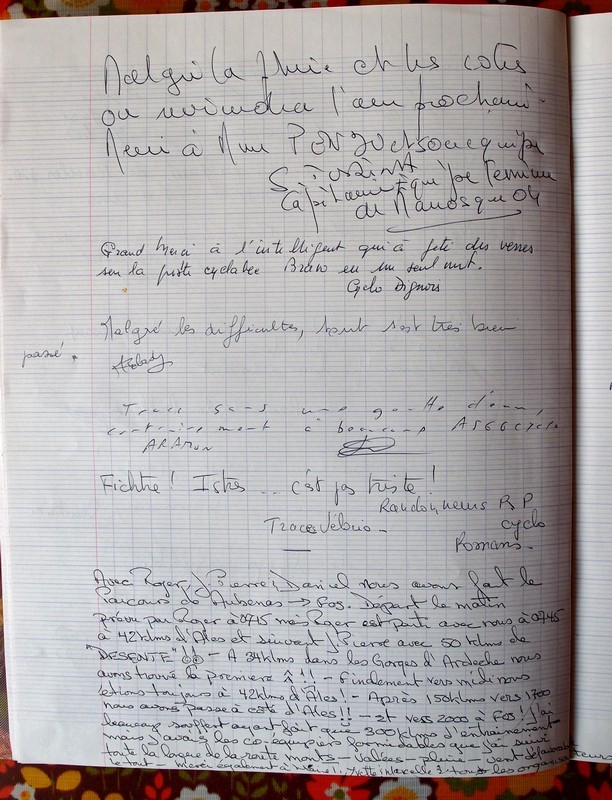 Malgré la pluie et les cotes
on reviendra l'an prochain
Merci à Mme PONZO et son equipe
Capitaine Equipe Feminine
de Manosque 04
Grand Merci à l'intelligent qui à jeté des verres
sur la piste cyclable Bravo en un seul mot.
Cyclo Dignois
Malgré les difficultés, tout s'est très bien
passé.
Trace sans une goutte d'eau,
contrairement à beaucoup ASGGcyclo
ARAMON
Fichtre! Istres... c'est pas triste!
Randonneurs RP
Traces Vébuo - cyclo
Romans -
Avec Roger, J Pierre, Daniel nous avons fait le
Parcours de Aubenas → Fos. Départ le matin
prévu par Roger à 0715 mes Roger est parti avec nous à 0745
à 42klms d'Ales et suivant J Pierre avec 50 klms de
"DESENTE"!! - A 34klms dans les Gorges d'Ardeche nous
avons trouvé la première !! - Finalement vers midi nous
etions toujours à 42klms d'Ales! - Après 150klms vers 1700
nous avons passé à côté d'Ales!! - et vers 2000 à Fos! J'ai
beaucoup souffert ayant fait que 300 klms d'entrainement
mais j'avais les co-équipiers formidables que j'ai suivi
toute la longeur de la route monts - Vallées - pluie - vent
le tout - Merci également à Yvette Marcelle tous les organisateurs